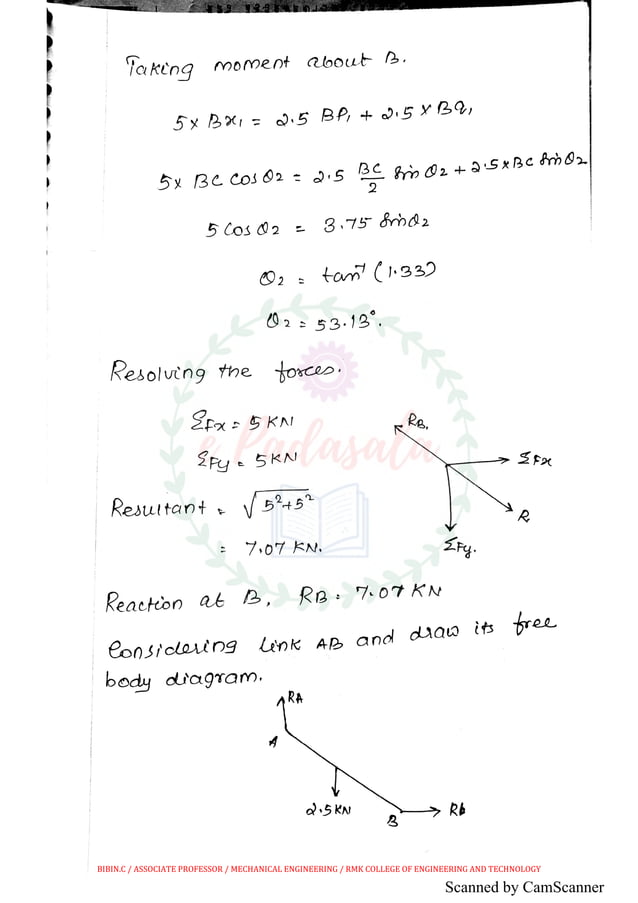 Taking moment about B.
5 x Bx₁ = 2.5 BP₁ + 2.5 x Bq₁
5 x BC cos θ2 = 2.5 BC/2 sin θ2 + 2.5 x BC sin θ2
5 cos θ2 = 3.75 sin θ2
θ2 = tan⁻¹ (1.33)
θ2 = 53.13°.
Resolving the forces.
ΣFx = 5 KN
ΣFy = 5 KN
RB.
ΣFx
R
ΣFy.
Resultant = √5²+5²
= 7.07 KN.
Reaction at B, RB = 7.07 KN
Considering link AB and draw its free
body diagram.
RA
A
2.5 KN
B
Rb
e Padasalai
BIBIN.C / ASSOCIATE PROFESSOR / MECHANICAL ENGINEERING / RMK COLLEGE OF ENGINEERING AND TECHNOLOGY
Scanned by CamScanner